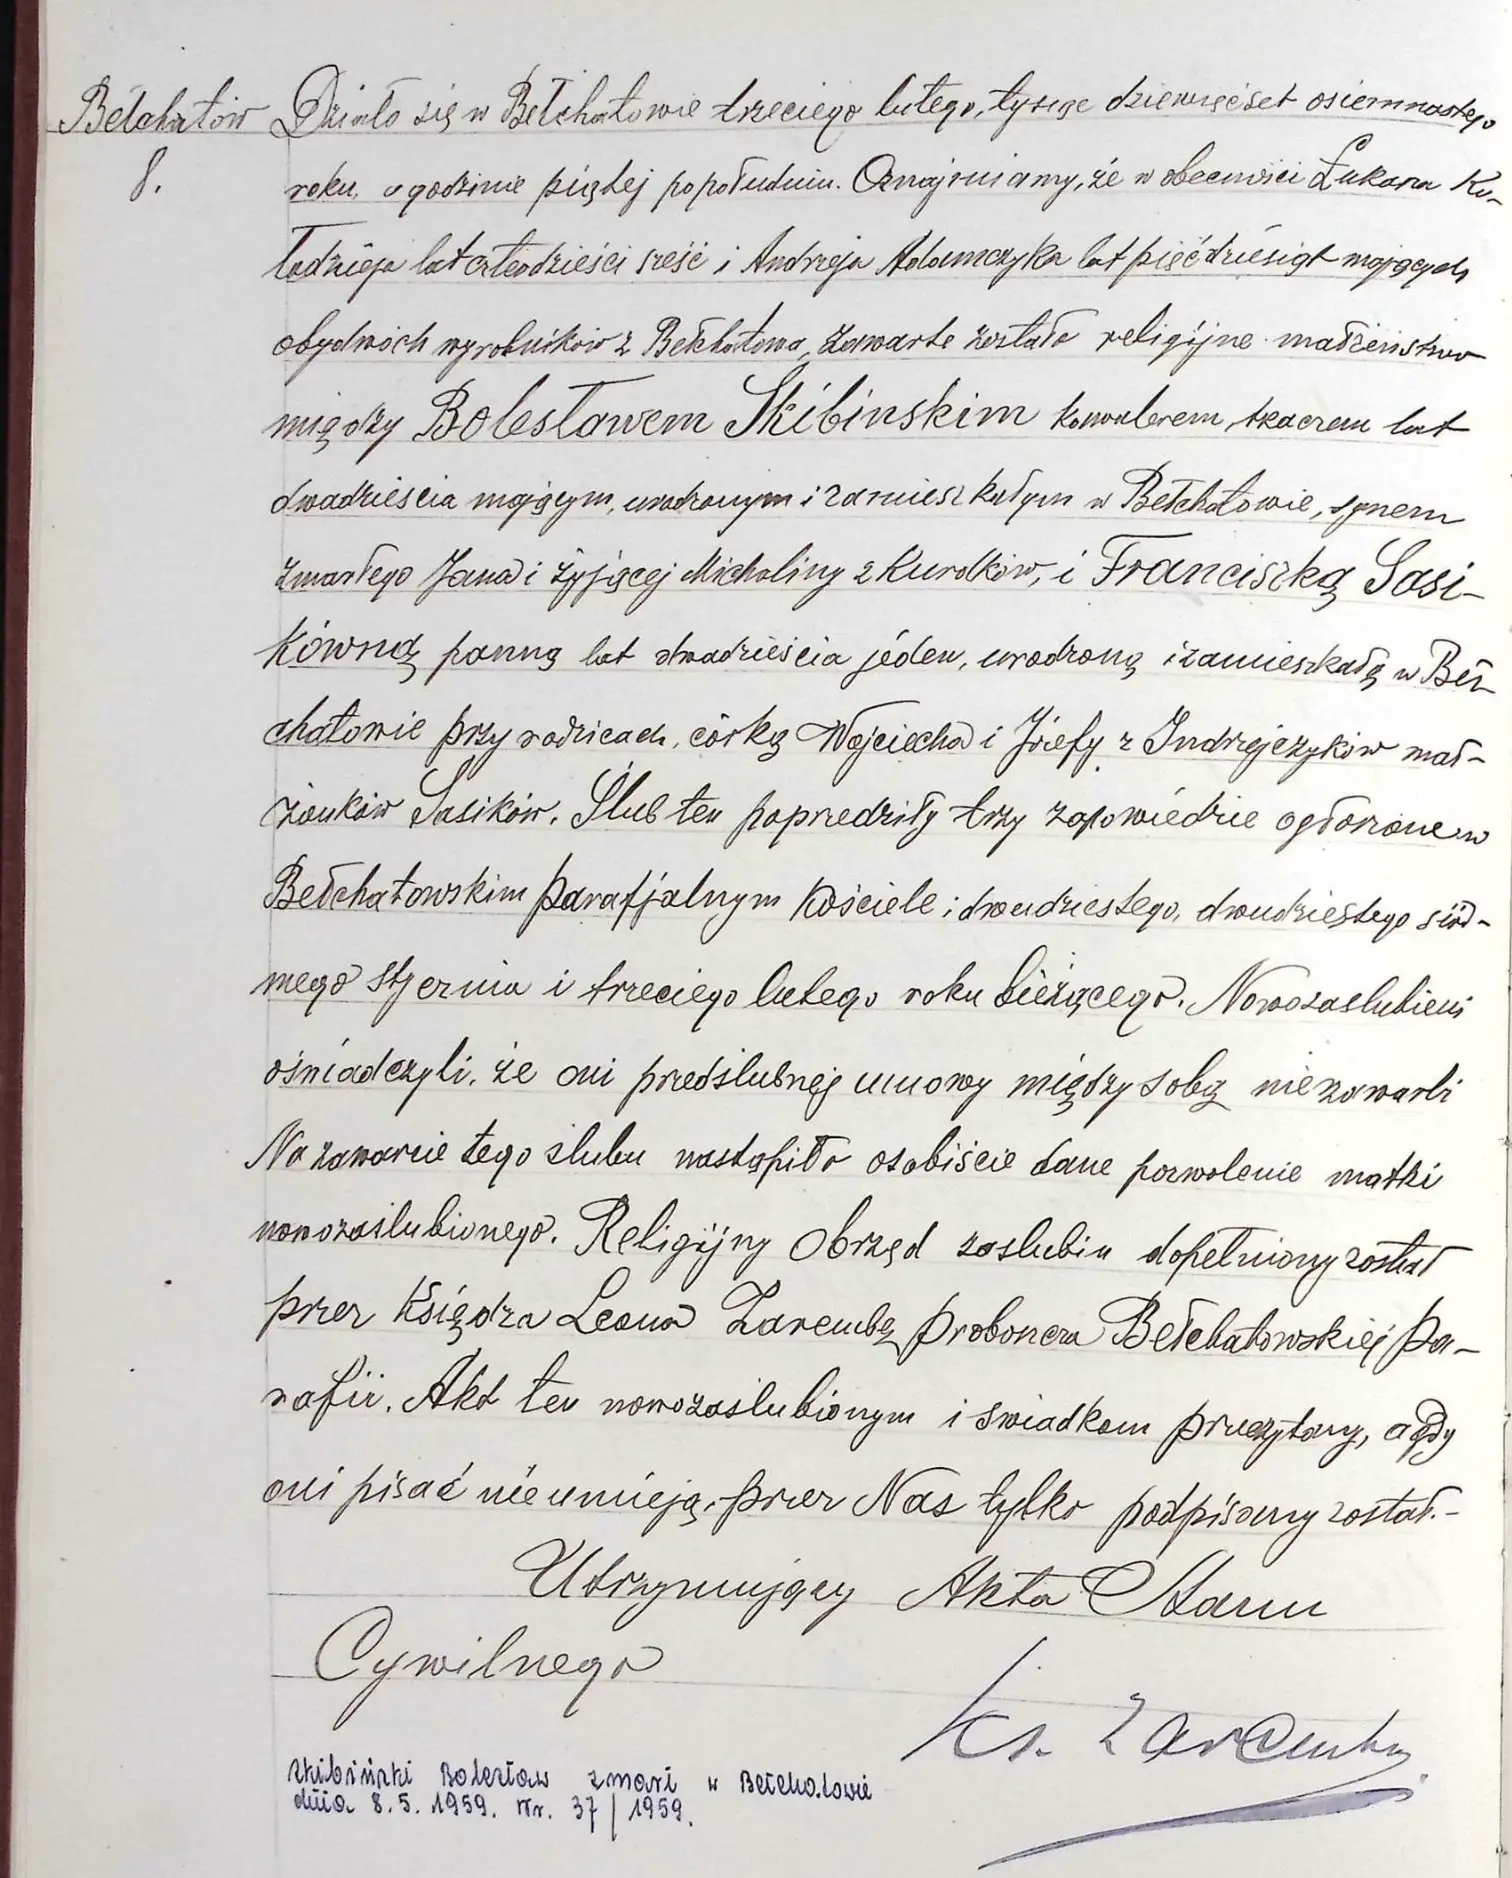 Bełchatów
8.
Działo się w Bełchatowie trzeciego lutego, tysiąc dziewięćset osiemnastego
roku, o godzinie piątej popołudniu. Oznajmiamy, że w obecności Łukasza Ko-
łodzieja lat czterdzieści sześć i Andrzeja Adamczyka lat pięćdziesiąt mających
obydwóch wyrobników z Bełchatowa, zawarte zostało religijne małżeństwo
między Bolesławem Skibinskim kawalerem, tkaczem lat
dwadzieścia mającym, urodzonym i zamieszkałym w Bełchatowie, synem
zmarłego Jana i żyjącej Micholiny z Kurolków, i Franciszką Sasi-
kówną panną lat dwadzieścia jeden, urodzoną i zamieszkałą w Beł-
chatowie przy rodzicach, córką Wojciecha i Józefy z Jndrzejczyków mał-
żonków Sasików. Ślub ten poprzedziły trzy zapowiedzie ogłoszone w
Bełchatowskim parafjalnym Kościele: dwudziestego, dwudziestego siód-
mego stycznia i trzeciego lutego roku bieżącego. Nowozaslubieni
oświadczyli, że oni przedślubnej umowy między sobą niezawarli
Na zawarcie tego slubu nastąpiło osobiście dane pozwolenie matki
nowozaślubionego. Religijny obrzęd zaslubin dopełniony został
przez księdza Leona Zarembę proboszcza Bełchatowskiej pa-
rafii. Akt ten nowozaślubionym i swiadkom przeczytany, a gdy
oni pisać nieumieją, przez Nas tylko podpisany został.-
Utrzymujący Akta Stanu
Cywilnego
Ks. Zaremba
Skibiński Bolesław zmarł w Bełchatowie
dnia 8.5.1959. Nr. 37/1959.